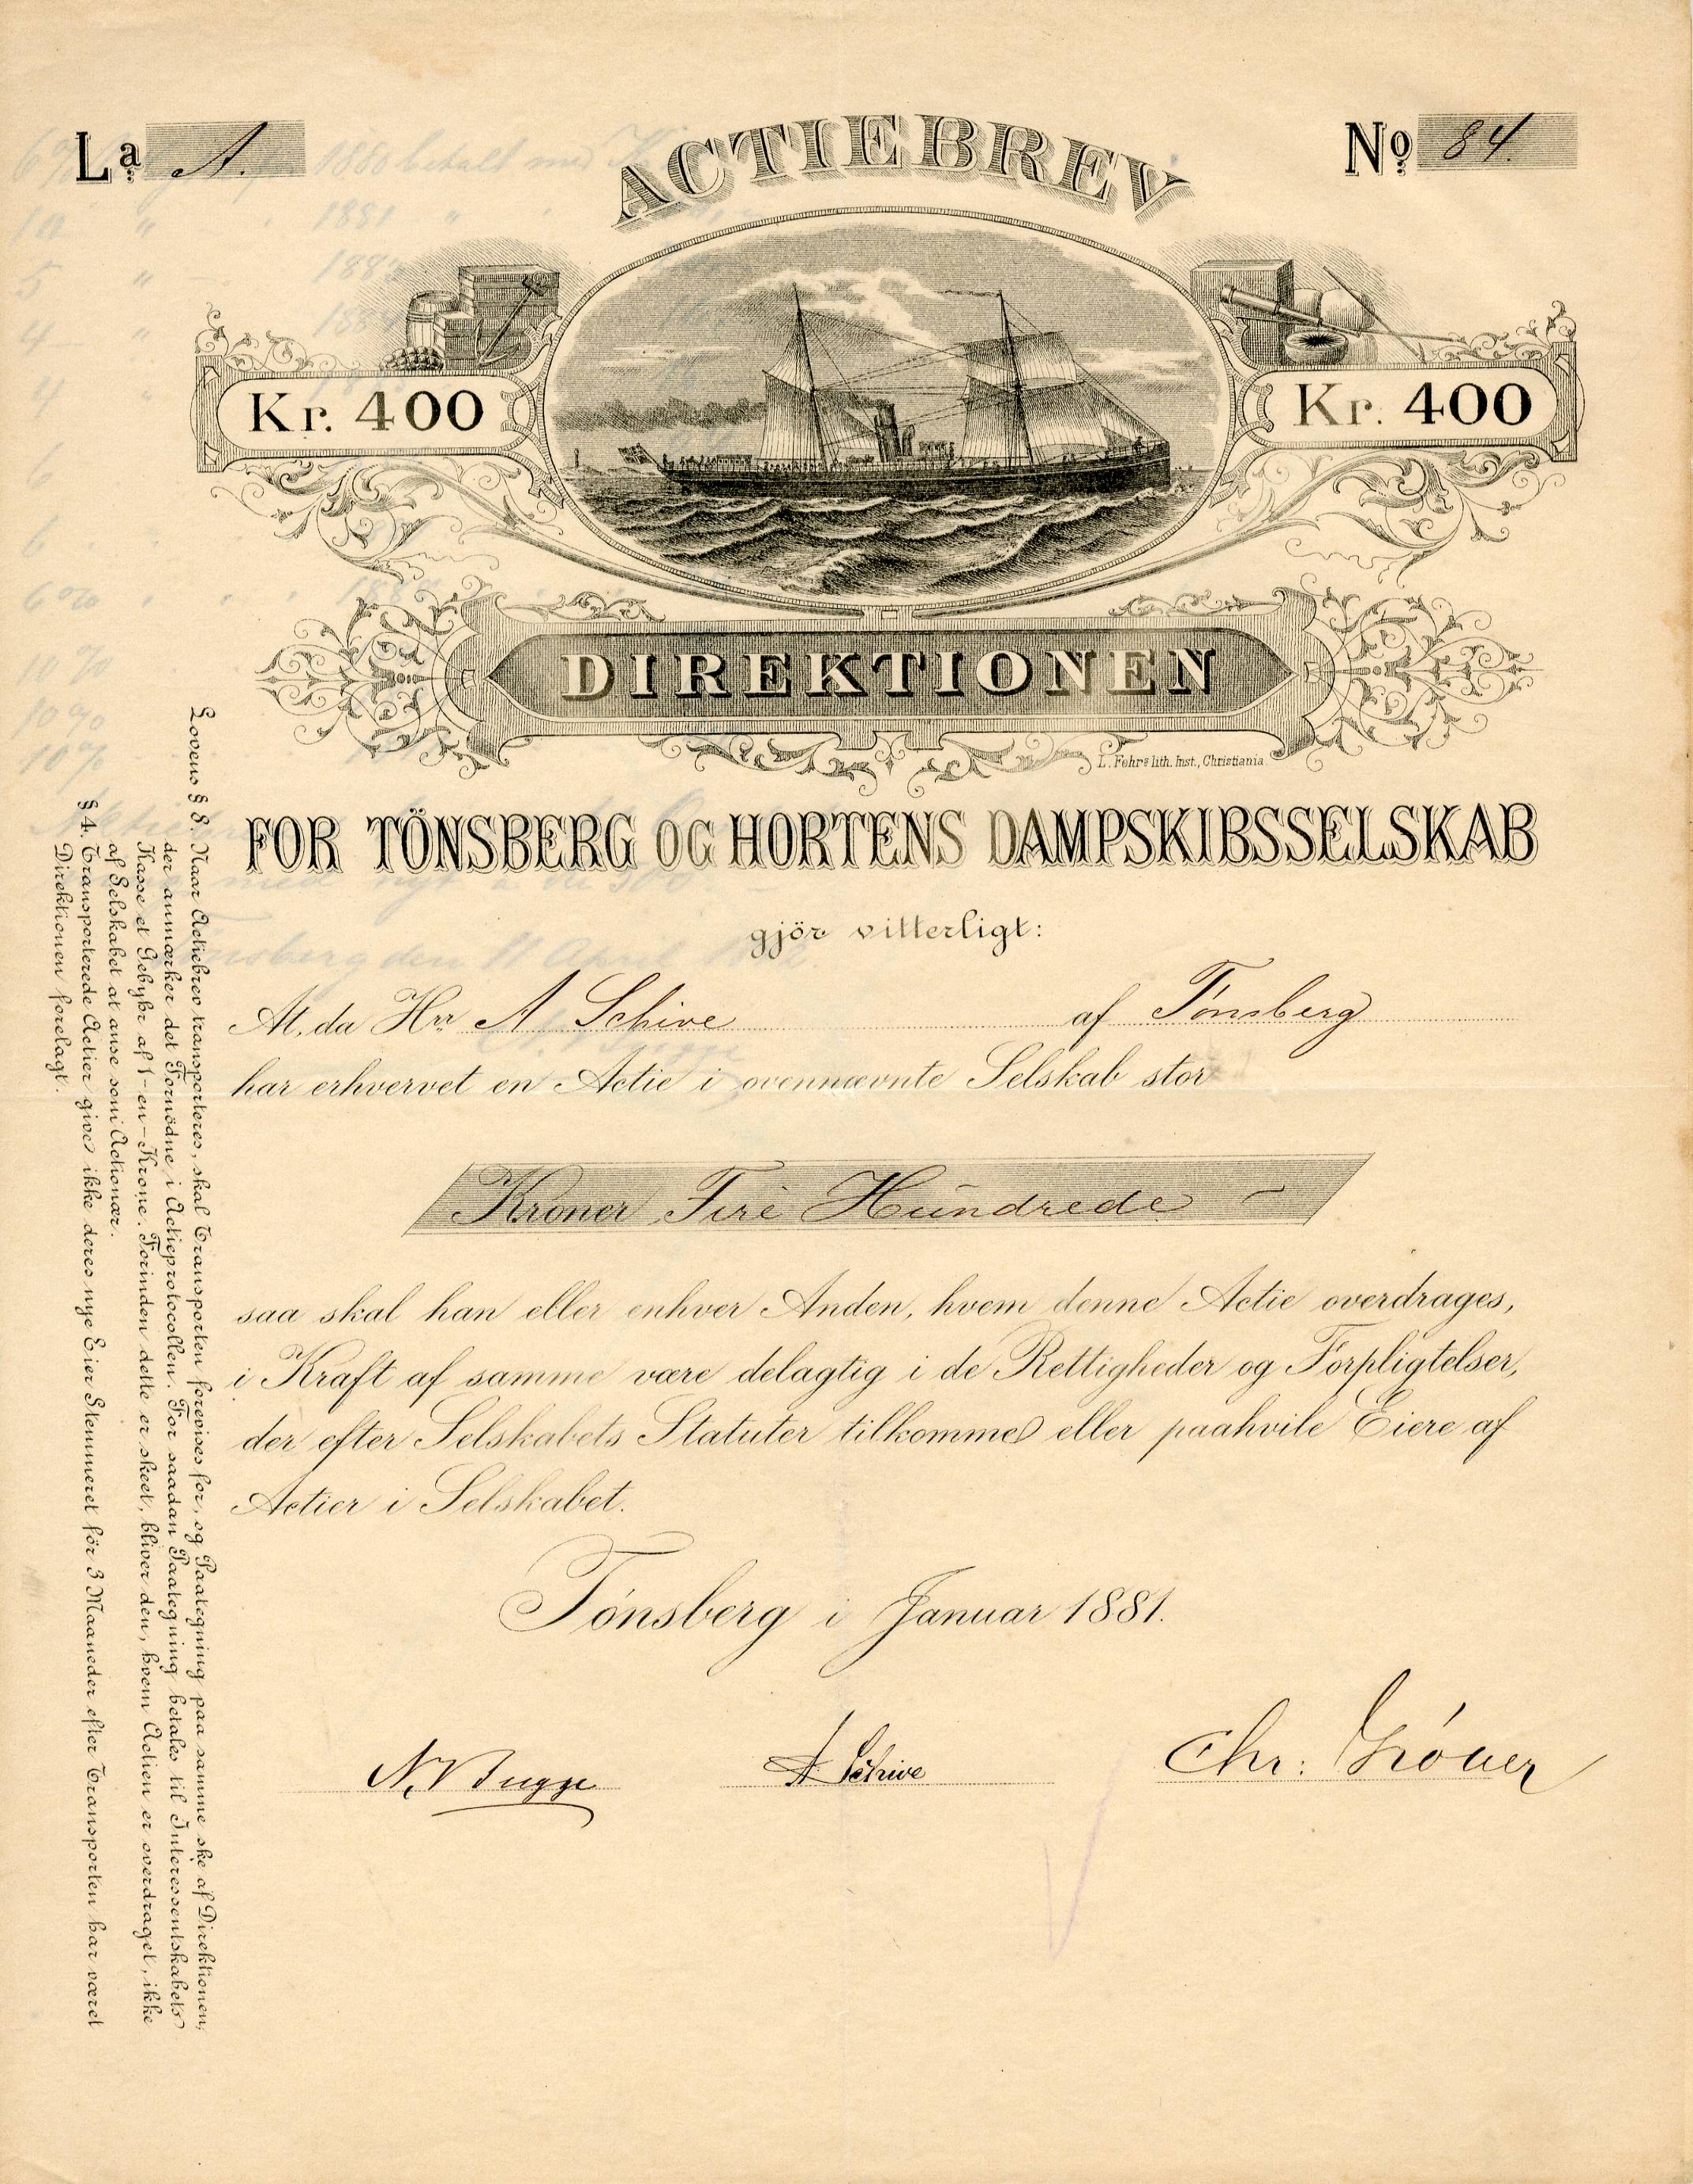 La A.
No 84.
ACTIEBREV
Kr. 400
Kr. 400
DIREKTIONEN
L. Fehrs lith. Inst., Christiania
FOR TÖNSBERG OG HORTENS DAMPSKIBSSELSKAB
gjör vitterligt:
At, da Hrr A Schive af Tönsberg
har erhvervet en Actie i ovennævnte Selskab stor
Kroner Fire Hundrede
saa skal han eller enhver Anden, hvem denne Actie overdrages,
i Kraft af samme være delagtig i de Rettigheder og Forpligtelser,
der efter Selskabets Statuter tilkomme eller paahvile Eiere af
Actier i Selskabet.
Tönsberg i Januar 1881.
N. Bugge
A Schive
Chr: Gröner
Lovens § 8. Naar Actiebrev transporteres, skal Transporten forevises for, og Paategning paa samme ske af Direktionen,
der anmærker det Fornödne i Actieprotocollen. For saadan Paategning betales til Interessentskabets
Kasse et Gebyhr af 1 - en - Krone. Forinden dette er skeet, bliver den, hvem Actien er overdraget, ikke
af Selskabet at anse som Actionær.
§ 4. Transporterede Actier give ikke deres nye Eier Stemmeret för 3 Maaneder efter Transporten har været
Direktionen forelagt.
6%
1880 betalt med
10 " 1881 "
5 "
4 "
4
6
6
6%
10%
10%
10%
med nyt
Tönsberg den 11 April